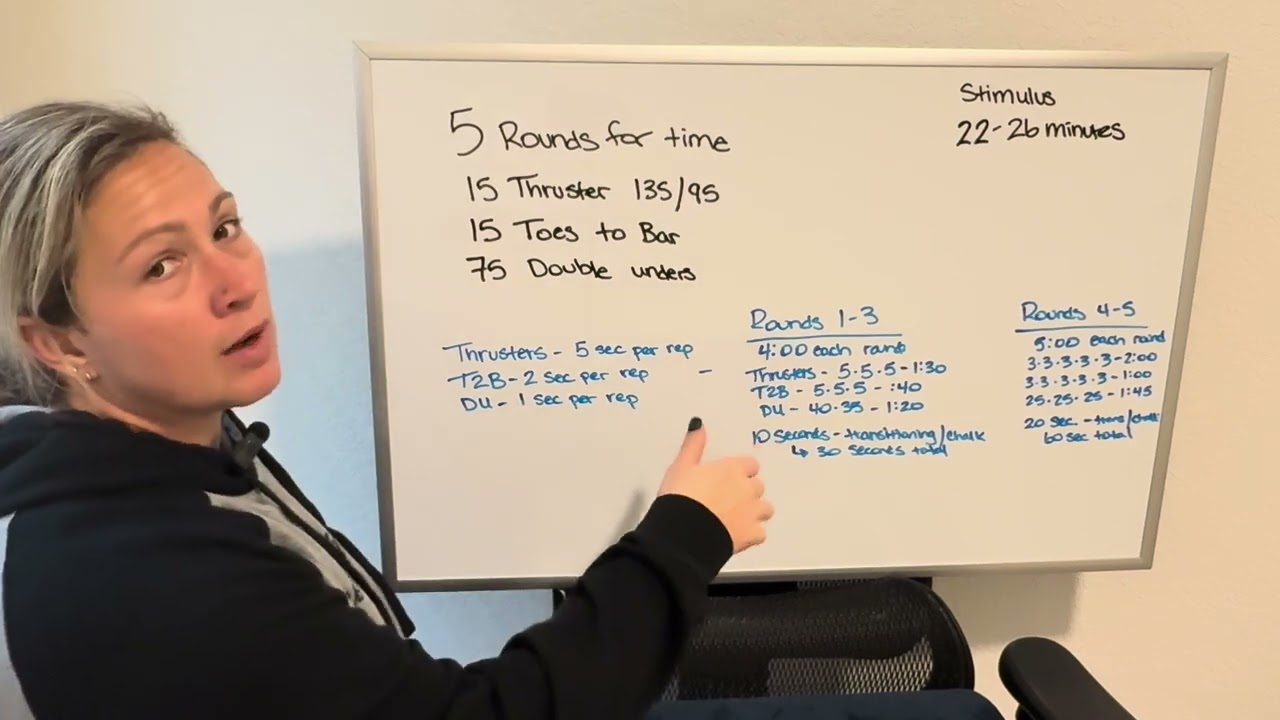 5 Rounds for time
15 Thruster 135/95
15 Toes to Bar
75 Double unders
Stimulus
22-26 minutes
Thrusters - 5 sec per rep
T2B - 2 sec per rep -
DU - 1 sec per rep
Rounds 1-3
4:00 each round
Thrusters - 5·5·5 - 1:30
T2B - 5·5·5 - :40
DU - 40·35 - 1:20
10 seconds - transitioning/chalk
↳ 30 seconds total
Rounds 4-5
5:00 each round
3·3·3·3·3 - 2:00
3·3·3·3·3 - 1:00
25·25·25 - 1:45
20 sec - trans/chalk
60 sec total